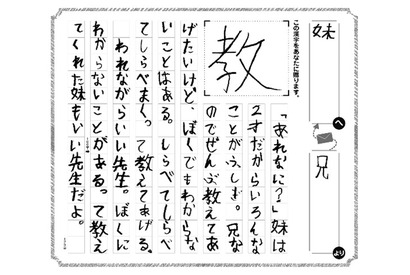 妹
へ
兄
より
この漢字をあなたに贈ります。
教
「あれなに?」妹は
2才だからいろんな
ことがふしぎ。兄な
のでぜんぶ教えてあ
げたいけど、ぼくでもわからな
いことはある。しらべてしらべ
てしらべまくって教えてあげる。
われながらいい先生。ぼくに
わからないことがあるって教え
てくれた妹もいい先生だよ。